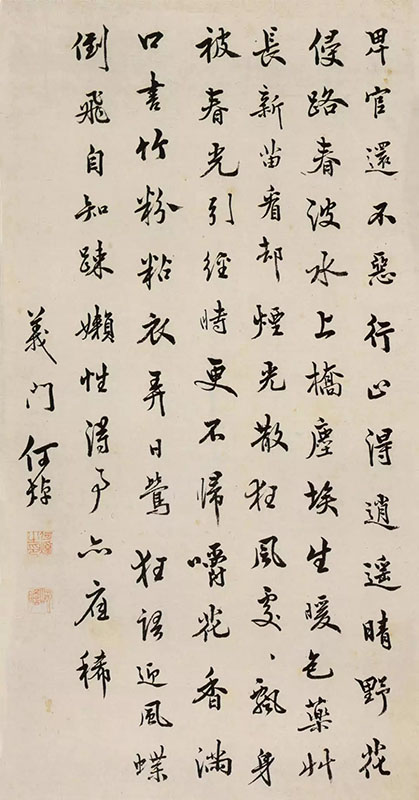 卑官還不惡行止得逍遥晴野花
侵路春波水上橋塵埃生暖色藥艸
長新苗看却煙光散狂風處〻飄身
被春光引經時更不歸嚼花香滿
口書竹粉粘衣弄日鶯狂語迎風蝶
倒飛自知疎嬾性得事亦應稀
義門何焯